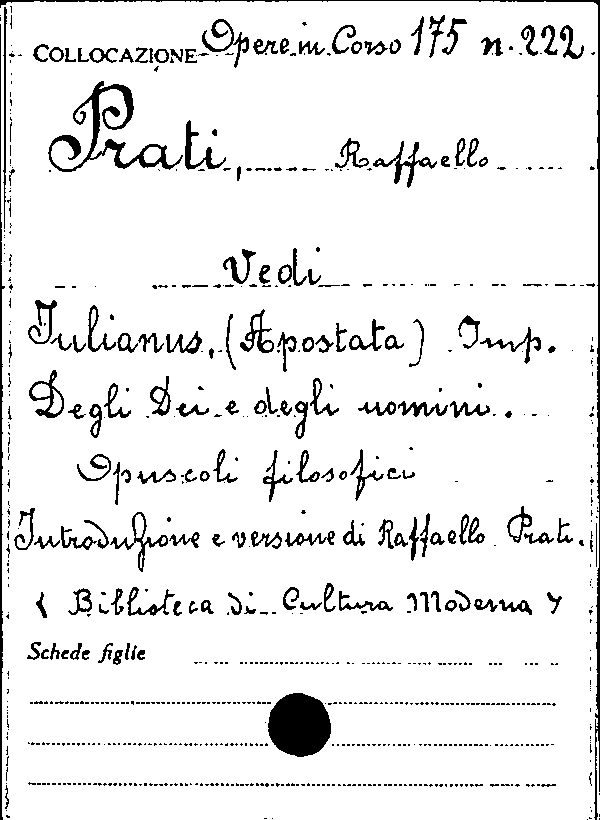 COLLOCAZIONE Opere in Corso 175 n. 222
Prati, Raffaello
Vedi
Iulianus, (Apostata) Imp.
Degli Dei e degli uomini.
Opuscoli filosofici
Introduzione e versione di Raffaello Prati.
< Biblioteca di Cultura Moderna >
Schede figlie